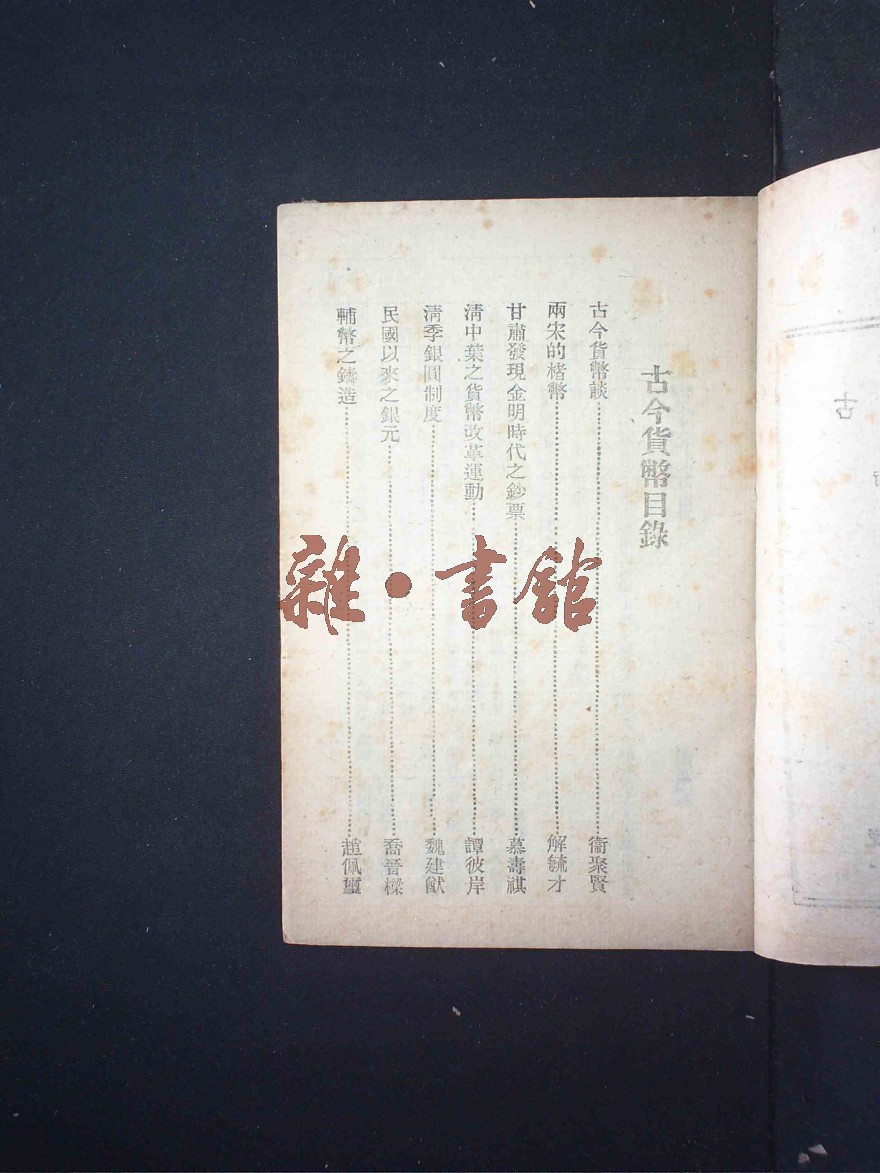 古
古今貨幣目錄
古今貨幣談……衞聚賢
兩宋的楮幣……解毓才
甘肅發現金明時代之鈔票……慕壽祺
清中葉之貨幣改革運動……譚彼岸
清季銀圓制度……魏建猷
民國以來之銀元……喬晉樑
輔幣之鑄造……趙佩璽
雜·書館